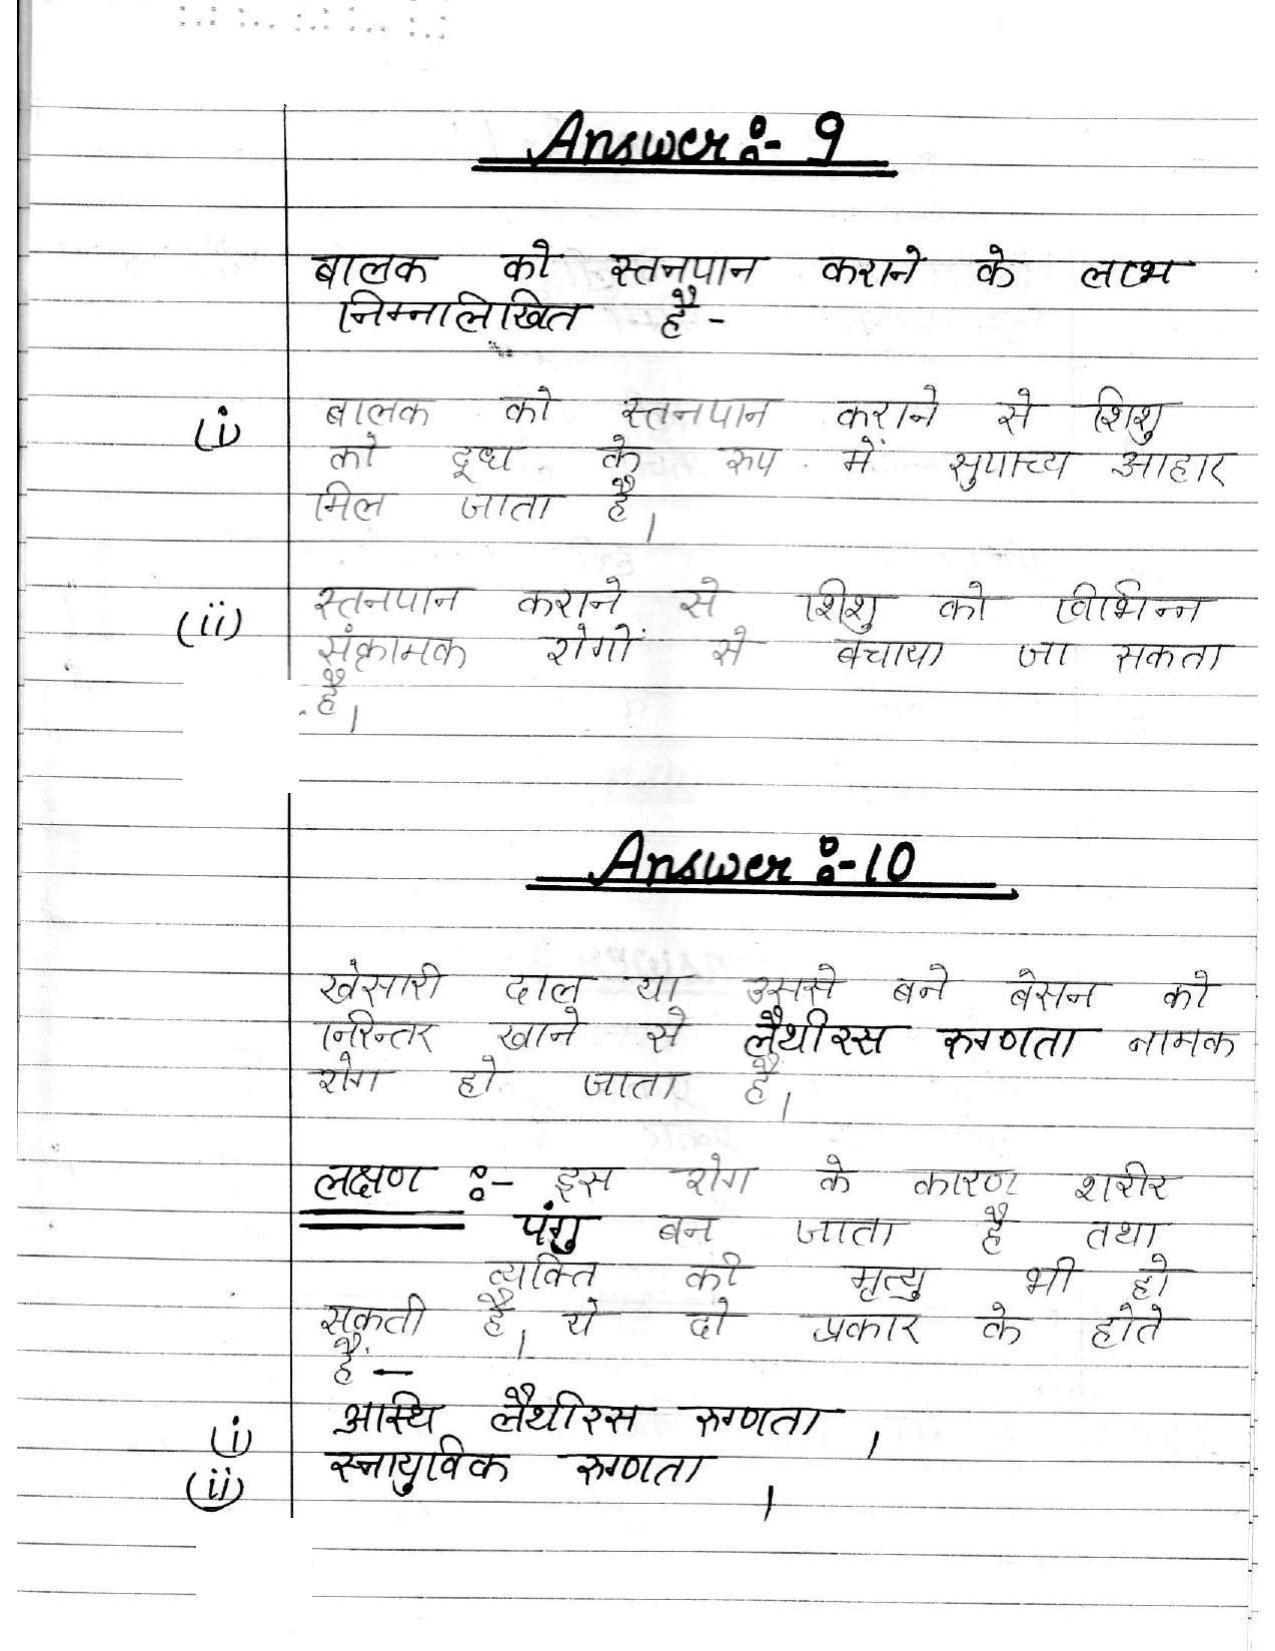 Answer :- 9
बालक को स्तनपान कराने के लाभ
निम्नलिखित है -
(i) बालक को स्तनपान कराने से शिशु
को दूध के रूप में सुपाच्य आहार
मिल जाता है।
(ii) स्तनपान कराने से शिशु को विभिन्न
संक्रामक रोगों से बचाया जा सकता
है।
Answer :- 10
खेसारी दाल या उससे बने बेसन को
निरन्तर खाने से लैथीरस रुग्णता नामक
रोग हो जाता है।
लक्षण :- इस रोग के कारण शरीर
पंगु बन जाता है तथा
व्यक्ति की मृत्यु भी हो
सकती है। ये दो प्रकार के होते
हैं -
(i) अस्थि लैथीरस रुग्णता।
(ii) स्नायुविक रुग्णता।